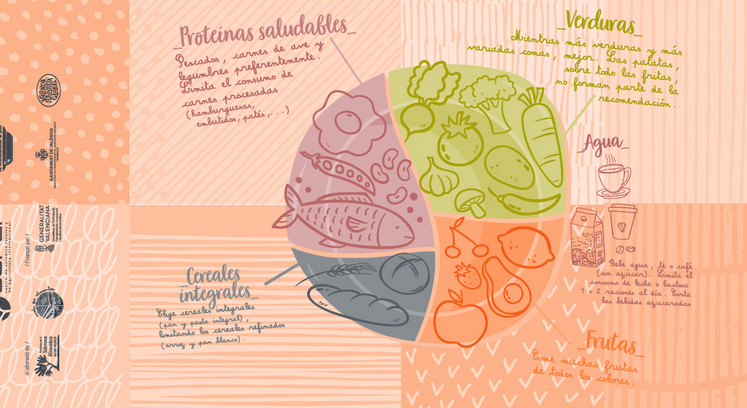 _Proteínas saludables_
Pescados, carnes de ave y
legumbres preferentemente.
Limita el consumo de
carnes procesadas
(Hamburguesas,
embutidos, patés,...)
_Verduras_
Mientras más verduras y más
variadas comas, mejor. Las patatas,
sobre todo las fritas,
no forman parte de la
recomendación.
_Agua_
Bebe agua, té o café
(sin azúcar). Limita el
consumo de leche o lácteos
1 o 2 raciones al día. Evita
las bebidas azucaradas
_Cereales
integrales_
Elige cereales integrales
(pan y pasta integral),
limitando los cereales refinados
(arroz y pan blanco).
_Frutas_
Come muchas frutas
de todos los colores.
AJUNTAMENT DE VALÈNCIA
/ Finançat per /
GENERALITAT
VALENCIANA